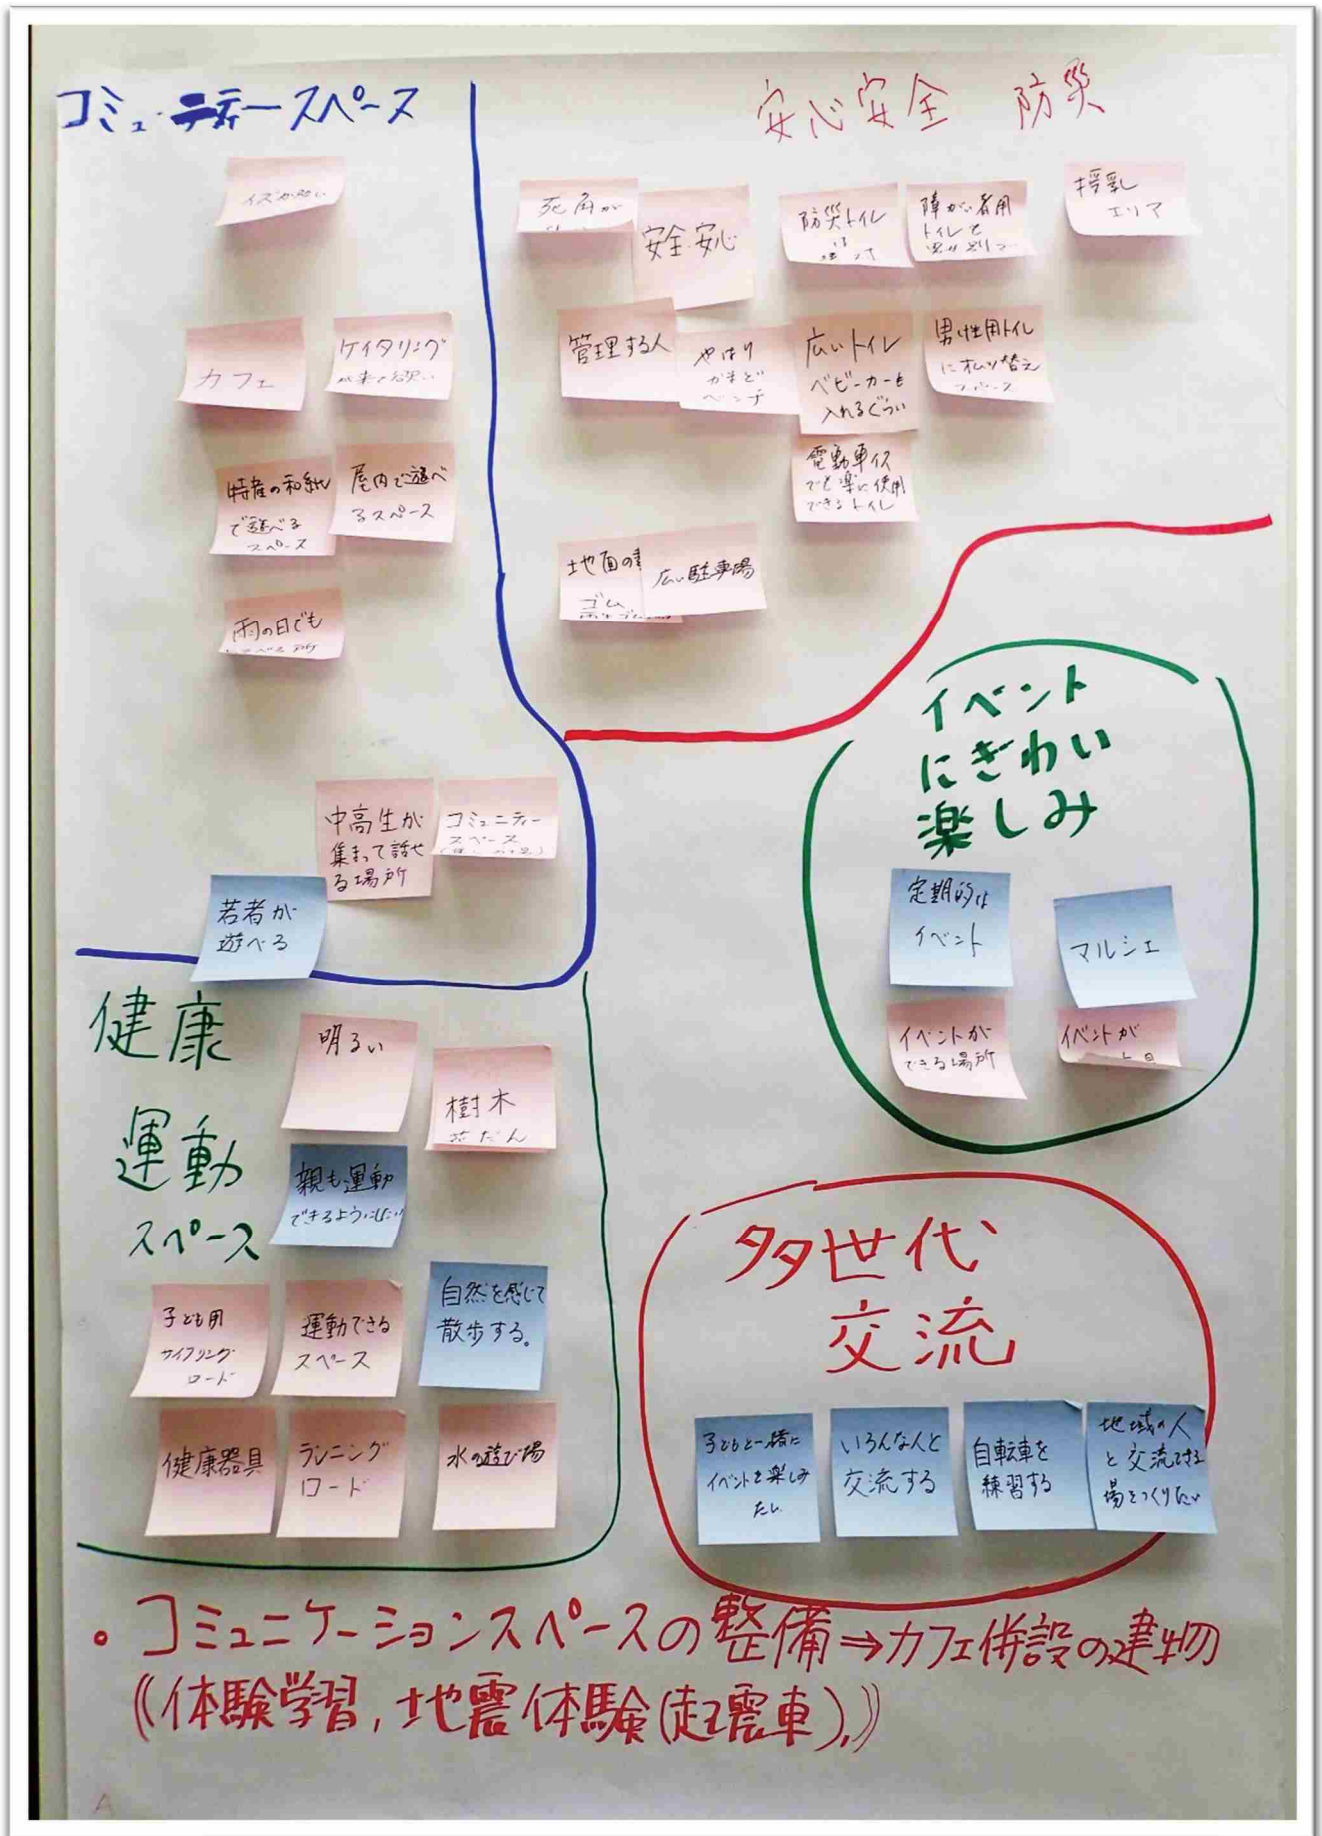 コミュニティースペース
カフェ
ケイタリング
が来て欲しい
特産の和紙
で遊べる
スペース
屋内で遊べ
るスペース
雨の日でも
中高生が
集まって話せ
る場所
コミュニティー
スペース
若者が
遊べる
安心安全 防災
死角が
安全・安心
防災トイレ
は
障がい者用
トイレと
授乳
エリア
管理する人
やはり
かまど
ベンチ
広いトイレ
ベビーカーも
入れるぐらい
男性用トイレ
にオムツ替え
スペース
電動車イス
でも楽に使用
できるトイレ
地面の
ゴム
広い駐車場
イベント
にぎわい
楽しみ
定期的な
イベント
マルシェ
イベントが
できる場所
イベントが
健康
運動
スペース
明るい
樹木
花だん
親も運動
できるようにしたい
子ども用
サイクリング
ロード
運動できる
スペース
自然を感じて
散歩する。
健康器具
ランニング
ロード
水の遊び場
多世代
交流
子どもと一緒に
イベントを楽しみ
たい
いろんな人と
交流する
自転車を
練習する
地域の人
と交流できる
場をつくりたい
・コミュニケーションスペースの整備⇒カフェ併設の建物
《体験学習,地震体験(起震車).》
A